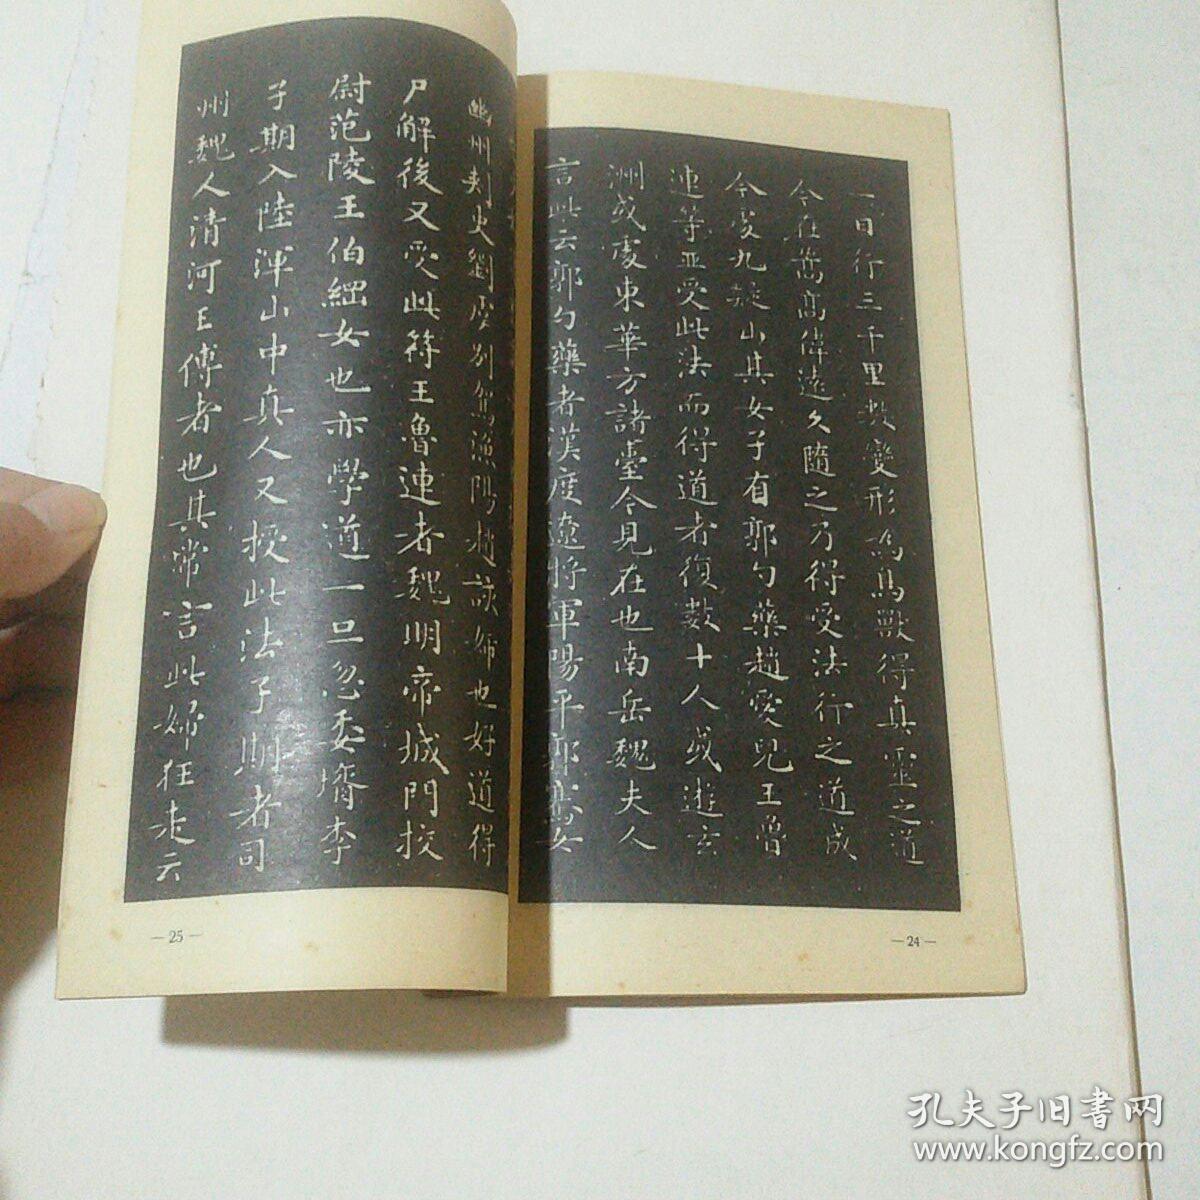 一日行三千里數變形為鳥獸得真靈之道
今在嵩高偉遠久隨之乃得受法行之道成
今處九疑山其女子有郭勺藥趙愛兒王魯
連等並受此法而得道者復數十人或遊玄
洲或處東華方諸臺今見在也南岳魏夫人
言此云郭勺藥者漢度遼將軍陽平郭騫女
— 24 —
幽州刺史劉虞別駕漁陽趙該姊也好道得
尸解後又受此符王魯連者魏明帝城門校
尉范陵王伯綱女也亦學道一旦忽委壻李
子期入陸渾山中真人又授此法子期者司
州魏人清河王傅者也其常言此婦狂走云
— 25 —
孔夫子旧書网
www.kongfz.com